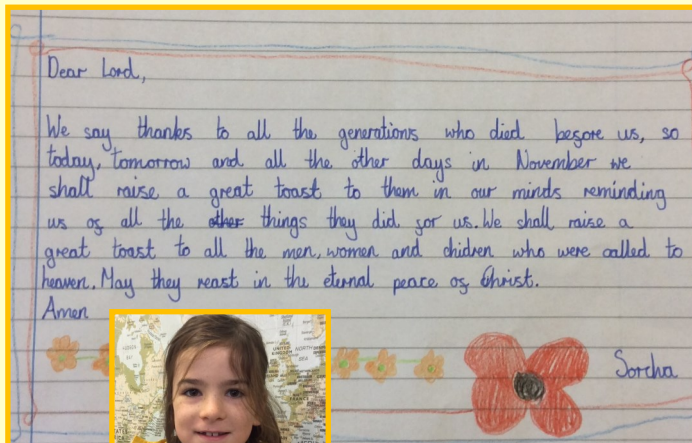 Dear Lord,
We say thanks to all the generations who died before us, so
today, tomorrow and all the other days in November we
shall raise a great toast to them in our minds reminding
us of all the other things they did for us. We shall raise a
great toast to all the men, women and chidren who were called to
heaven. May they reast in the eternal peace of Christ.
Amen
Sorcha